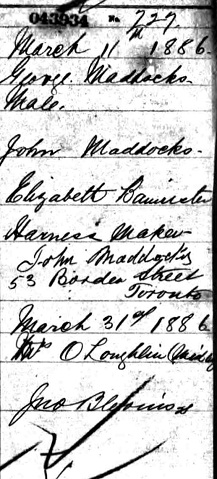 043934 No. 727
March 11th 1886
George Maddocks.
Male.
John Maddocks.
Elizabeth Banister
Harness Maker
John Maddocks
53 Borden Street
Toronto
March 31st 1886
Mrs O'Loughlin
Jno Blevins